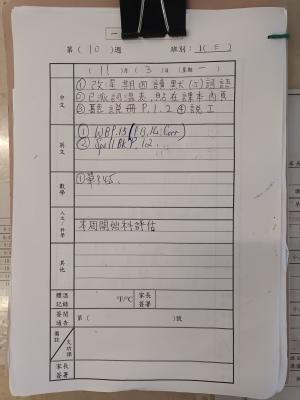 一
第 ( 10 ) 週 班別: 1( E )
( 11 )月( 3 )日(星期 一 )
中文
① 改星期四讀默(三)詞語
② 已派詞語表,貼在課本內頁
③ 聽說冊 P.1.2 ④ 說工
英文
① WB P.15 (P.13,14 Corr)
② Spell BK P. 12.
數學
① 單P45.
人文/科學
本周開始科評估
其他
體溫記錄 °F/°C 家長簽署
簽閱通告 第( )號
備註 欠功課
家長簽署